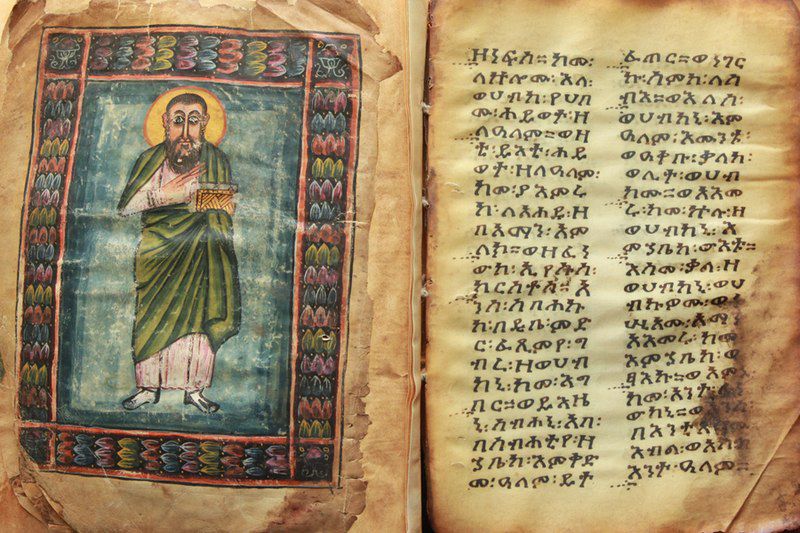 ዘነፍስ። ከመ፡
ለኵሎሙ፡ እለ፡
ወሀብከ፡ የሀበ
ሙ፡ ሕይወቶ፡ ዘ
ለዓለም። ወዛ
ቲ፡ ይእቲ፡ ሕይ
ወት፡ ዘለዓለም፡
ከመ፡ ያእምሩ
ከ፡ ለአሐዱ፡ ዘ
በአማን፡ አም
ላክ። ወዘፈነ
ውከ፡ ኢየሱስ፡
ክርስቶስ። አ
ንሰ፡ ሰባሕኩ
ከ፡ በዲበ፡ ምድ
ር፡ ፈጺምየ፡ ግ
ብረ፡ ዘወሀብ
ከኒ፡ ከመ፡ እግ
በር። ወይእዜ
ኒ፡ ሰብሐኒ፡ አባ፡
በስብሐቲየ፡ ዘ
ኀቤከ፡ እምቅድ
መ፡ ዓለም፡ ይት
ፈጠር። ወነገር
ኩ፡ ስምከ፡ ለሰ
ብእ። ወእለሰ፡
ወሀብከኒ፡ እም
ዓለም፡ እመንቱ፡
ወዓቀቡ፡ ቃለከ፡
ወሊተ፡ ወሀብ
ከመ። ወአእመ
ሩ፡ ከመ፡ ኵሉ፡ ዘ
ወሀብከኒ፡ እ
ምኀቤከ፡ ውእቱ።
እስመ፡ ቃለ፡ ዘ
ወሀብከኒ፡ ወሀ
ብኩዎሙ፡
አማን
አእመሩ፡ ከመ
እምኀቤከ፡ ወ
ፃእኩ። ወአም
ከመ፡ አንተ፡
ውከኒ። ወ
እብል፡ ወአኮ
እንተ፡ ዓለም።